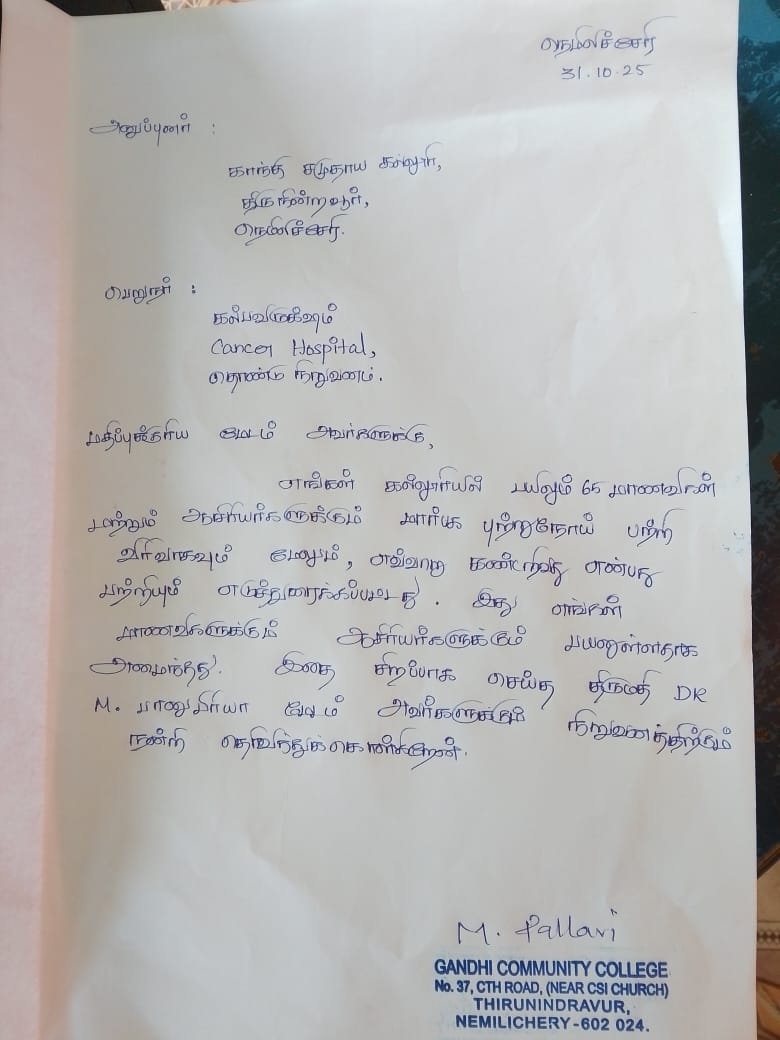 நெமிலிச்சேரி
31.10.25
அனுப்புனர் :
காந்தி சமுதாய கல்லூரி,
திருநின்றவூர்,
நெமிலிச்சேரி.
பெறுநர் :
கல்பவிருக்ஷம்
Cancer Hospital,
தொண்டு நிறுவனம்.
மதிப்புக்குரிய மேடம் அவர்களுக்கு,
எங்கள் கல்லூரியில் பயிலும் 65 மாணவிகள்
மற்றும் ஆசிரியர்களுக்கும் மார்பக புற்றுநோய் பற்றி
விரிவாகவும் மேலும், எவ்வாறு கண்டறிவது என்பது
பற்றியும் எடுத்துரைக்கப்பட்டது. இது எங்கள்
மாணவிகளுக்கும் ஆசிரியர்களுக்கும் பயனுள்ளதாக
அமைந்தது. இதை சிறப்பாக செய்த திருமதி DR
M. பானுபிரியா மேடம் அவர்களுக்கும் நிறுவனத்திற்கும்
நன்றி தெரிவித்துக்கொள்கிறேன்.
M. Pallavi
GANDHI COMMUNITY COLLEGE
No. 37, CTH ROAD, (NEAR CSI CHURCH)
THIRUNINDRAVUR,
NEMILICHERY-602 024.